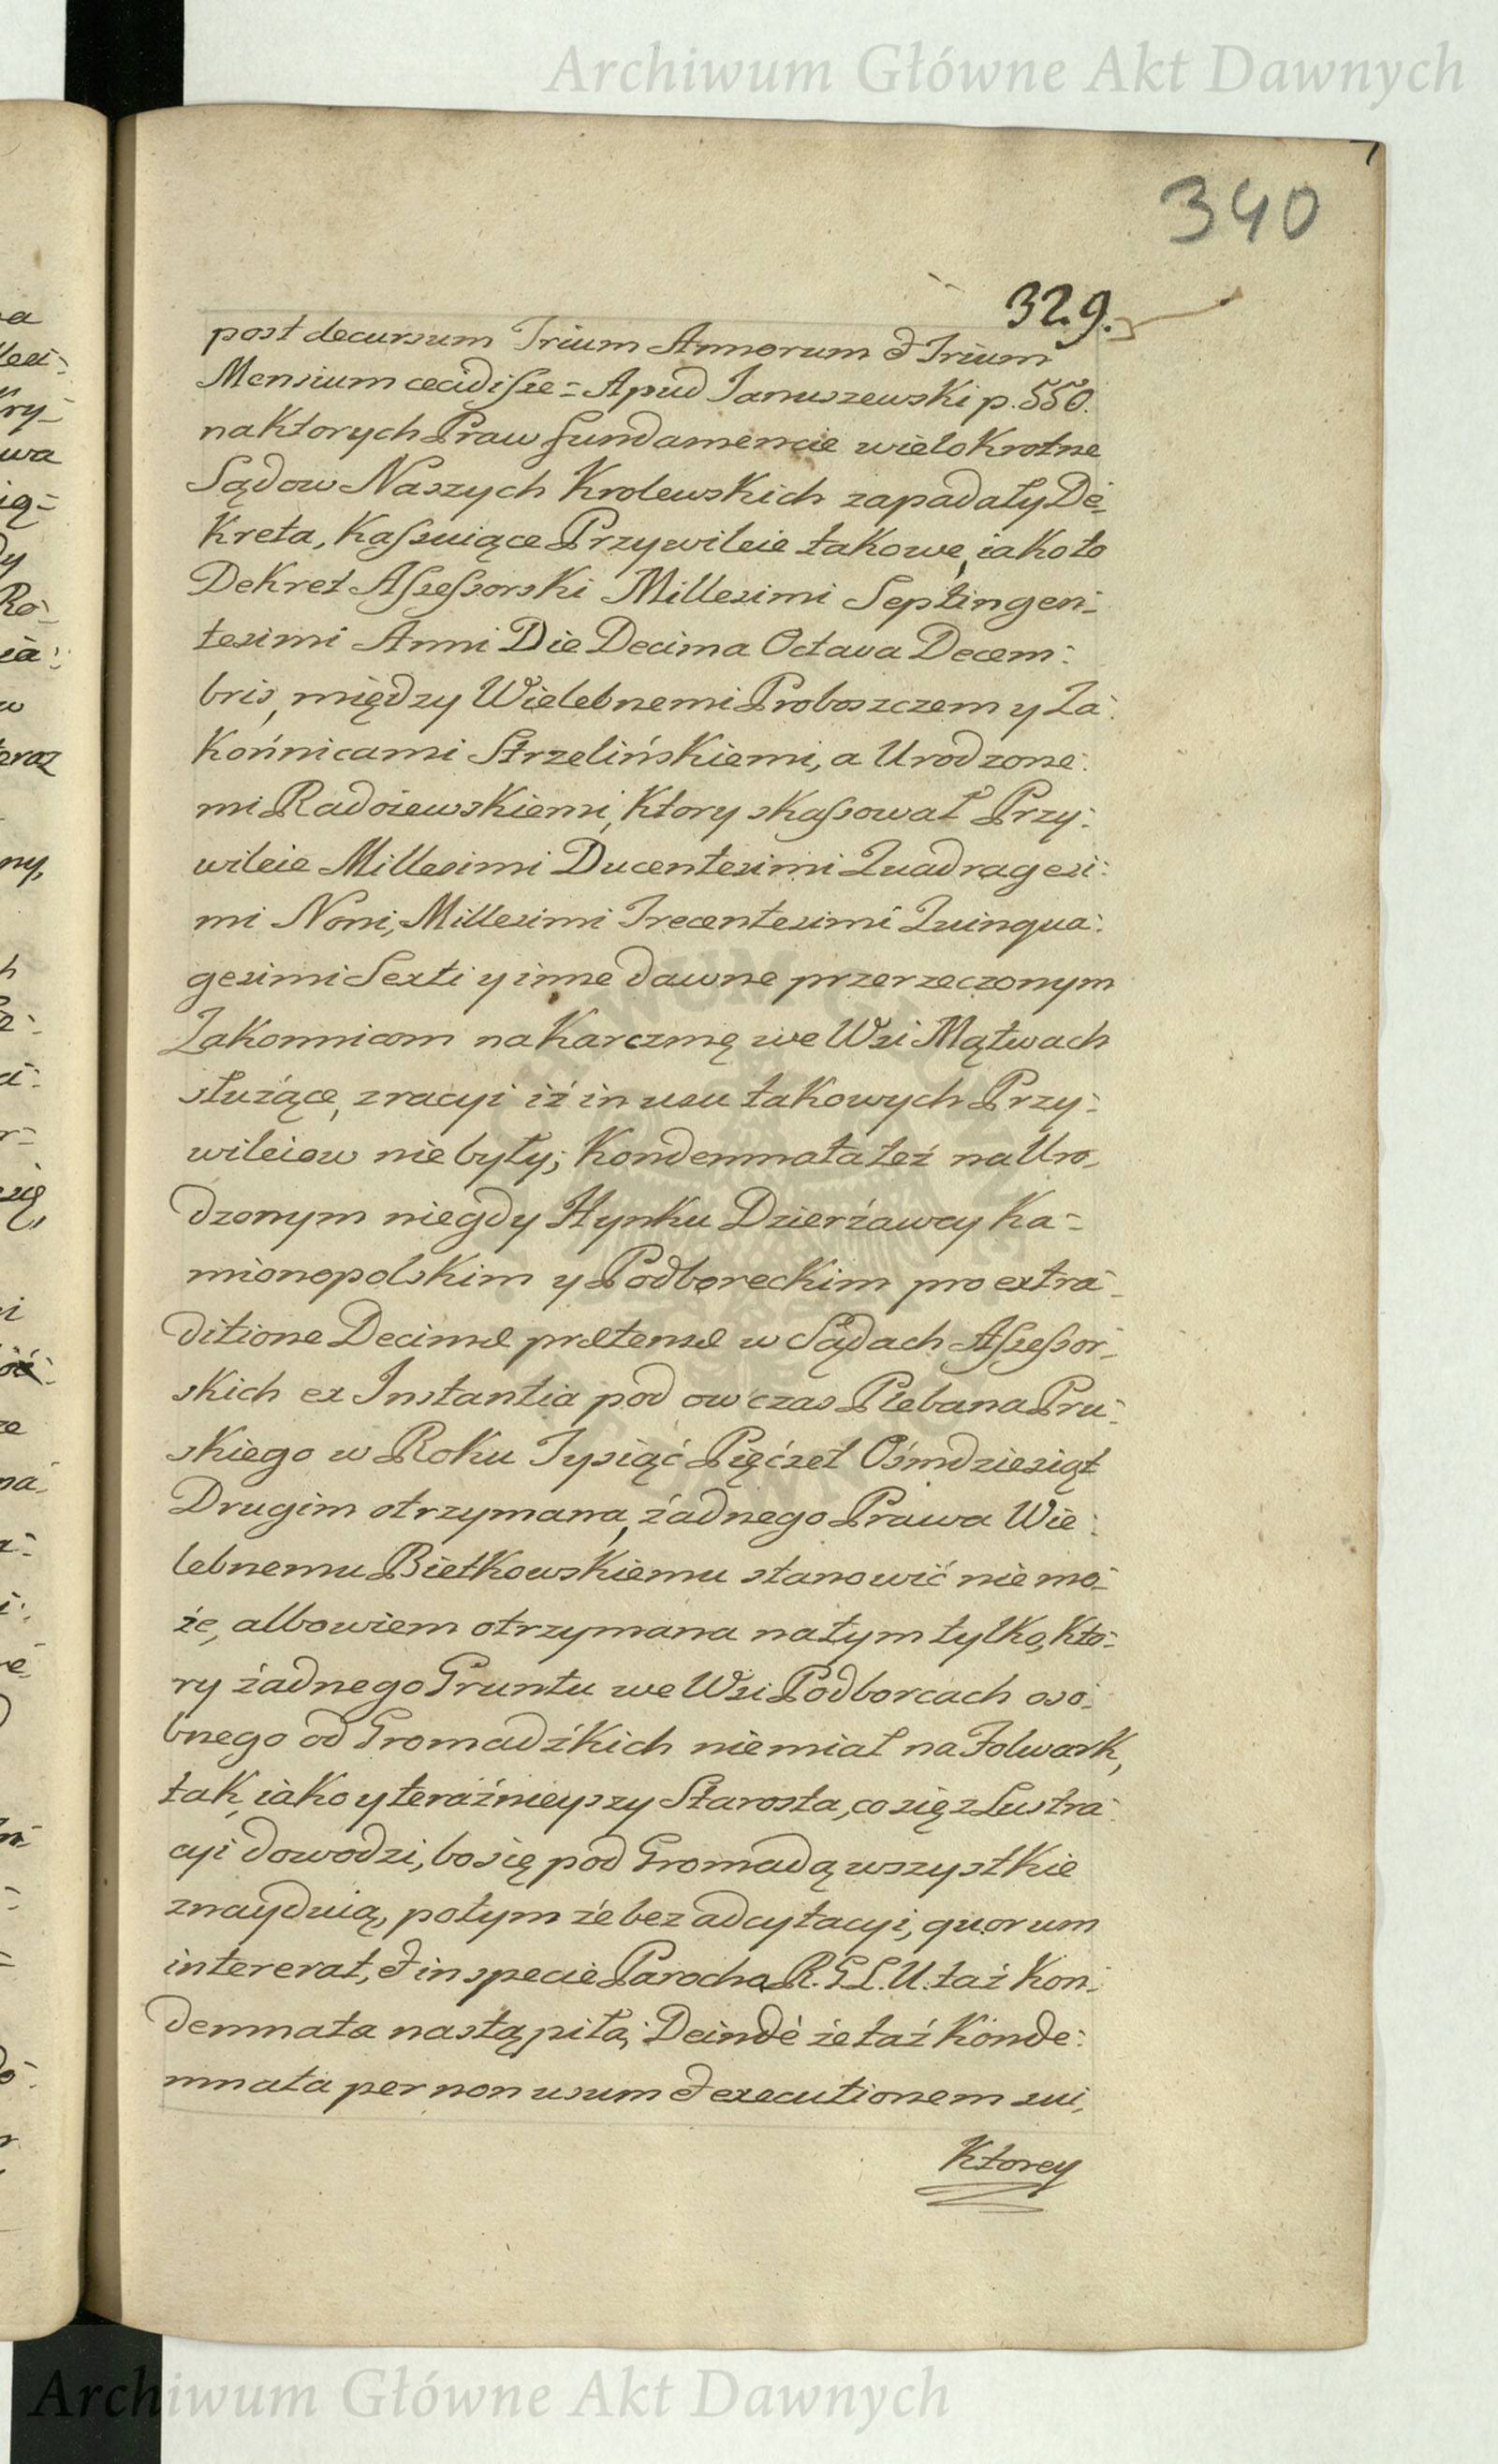 Archiwum Główne Akt Dawnych
340
329.
post decursum Trium Annorum & Trium
Mensium cecidisse = Apud Januszewski p. 550.
na ktorych Praw fundamencie wielokrotne
Sądow Naszych Krolewskich zapadały De-
kreta, kassuiące Przywileie takowe, iako to
Dekret Assessorski Millesimi Septingen-
tesimi Anni Die Decima Octava Decem-
bris, między Wielebnemi Proboszczem y Za-
końnicami Strzelińskiemi, a Urodzone-
mi Radoiewskiemi, ktory skassował Przy-
wileie Millesimi Ducentesimi Quadragesi-
mi Noni, Millesimi Trecentesimi Quinqua-
gesimi Sexti y inne dawne przerzeczonym
Zakonnicom na Karczmę we Wsi Mątwach
służące, z racyi iż in usu takowych Przy-
wileiow nie były; Kondemnata też na Uro-
dzonym niegdy Hynku Dzierżawcy Ka-
mionopolskim y Podboreckim pro extra-
ditione Decimæ prætensæ w Sądach Assessor-
skich ex Instantia pod ow czas Plebana Pru-
skiego w Roku Tysiąć Pięćset Ośmdziesiąt
Drugim otrzymana, żadnego Prawa Wie-
lebnemu Biełkowskiemu stanowić nie mo-
że, albowiem otrzymana na tym tylko, kto-
ry żadnego Gruntu we Wsi Podborcach oso-
bnego od Gromadźkich nie miał na Folwark,
tak, iako y teraźnieyszy Starosta, co się z Lustra-
cyi dowodzi, bo się pod Gromadą wszystkie
znayduią, potym że bez adcytacyi, quorum
intererat, & in specie Parocha R. G. L. U. taż Kon-
demnata nastąpiła; Deindè że taż Konde-
mnata per non usum & executionem sui,
Ktorey
Archiwum Główne Akt Dawnych